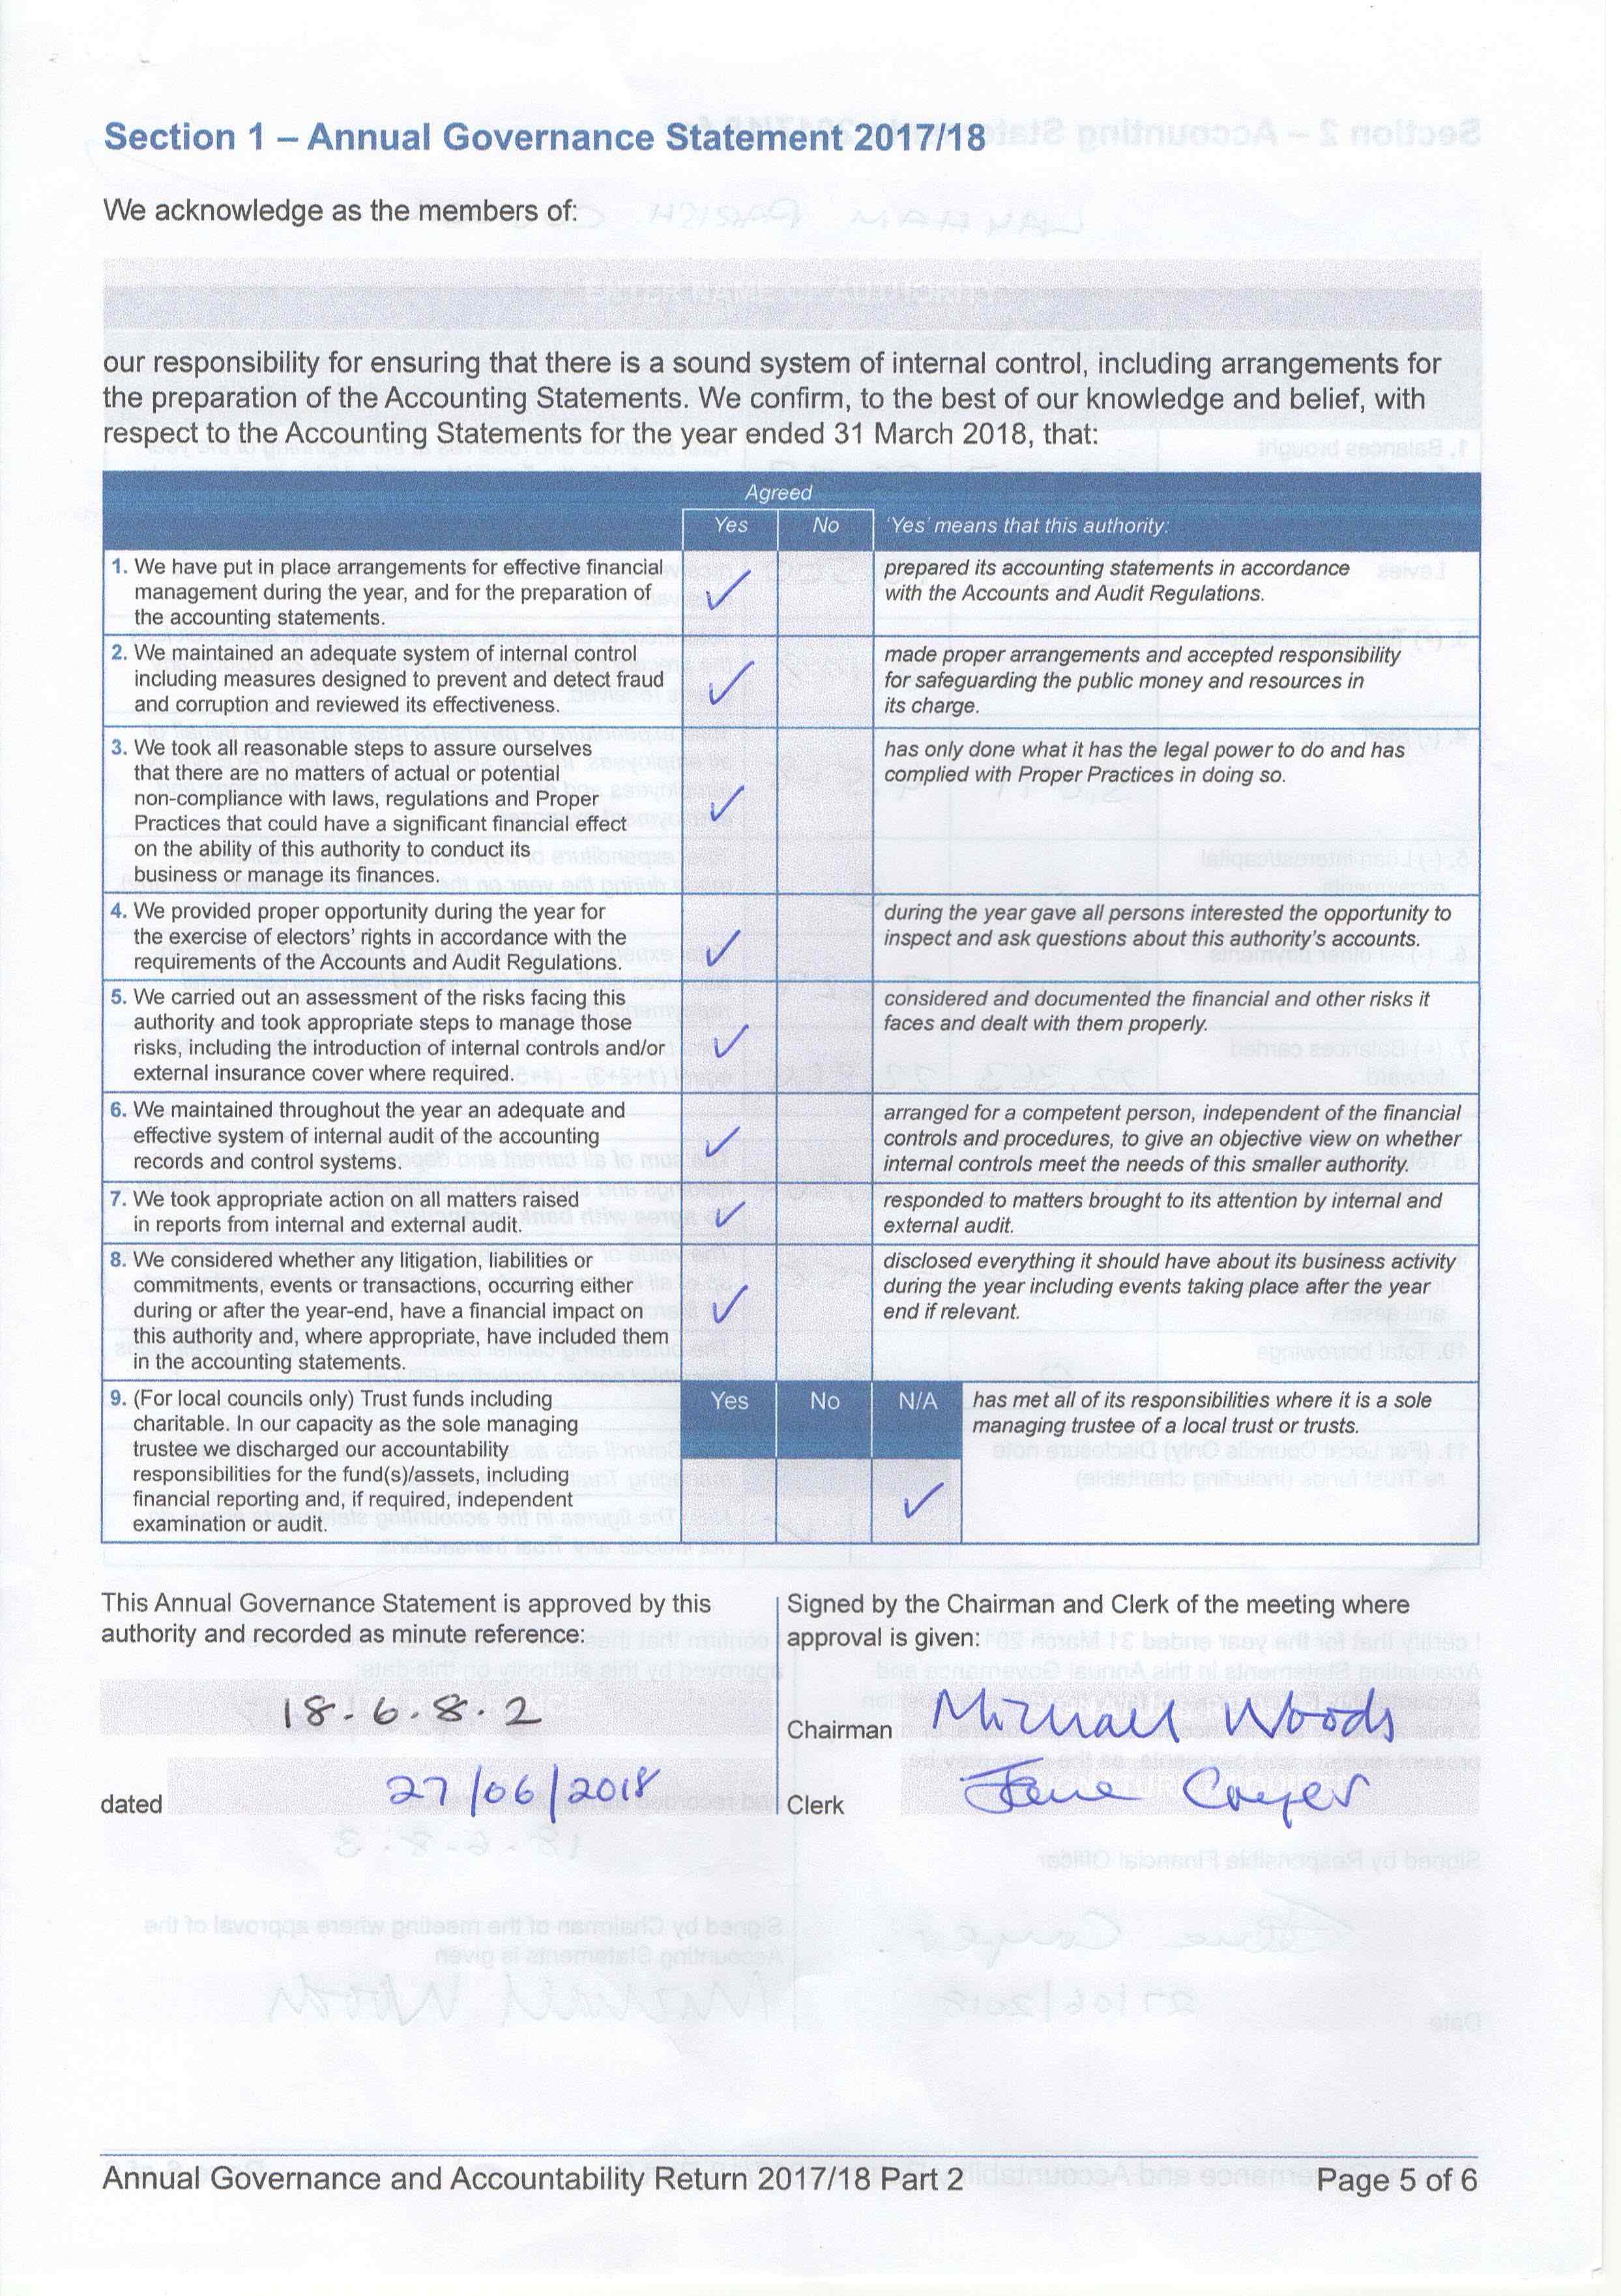 Section 1 – Annual Governance Statement 2017/18
We acknowledge as the members of:
our responsibility for ensuring that there is a sound system of internal control, including arrangements for
the preparation of the Accounting Statements. We confirm, to the best of our knowledge and belief, with
respect to the Accounting Statements for the year ended 31 March 2018, that:
Agreed
Yes No 'Yes' means that this authority:
1. We have put in place arrangements for effective financial
management during the year, and for the preparation of
the accounting statements.
✓
prepared its accounting statements in accordance
with the Accounts and Audit Regulations.
2. We maintained an adequate system of internal control
including measures designed to prevent and detect fraud
and corruption and reviewed its effectiveness.
✓
made proper arrangements and accepted responsibility
for safeguarding the public money and resources in
its charge.
3. We took all reasonable steps to assure ourselves
that there are no matters of actual or potential
non-compliance with laws, regulations and Proper
Practices that could have a significant financial effect
on the ability of this authority to conduct its
business or manage its finances.
✓
has only done what it has the legal power to do and has
complied with Proper Practices in doing so.
4. We provided proper opportunity during the year for
the exercise of electors' rights in accordance with the
requirements of the Accounts and Audit Regulations.
✓
during the year gave all persons interested the opportunity to
inspect and ask questions about this authority's accounts.
5. We carried out an assessment of the risks facing this
authority and took appropriate steps to manage those
risks, including the introduction of internal controls and/or
external insurance cover where required.
✓
considered and documented the financial and other risks it
faces and dealt with them properly.
6. We maintained throughout the year an adequate and
effective system of internal audit of the accounting
records and control systems.
✓
arranged for a competent person, independent of the financial
controls and procedures, to give an objective view on whether
internal controls meet the needs of this smaller authority.
7. We took appropriate action on all matters raised
in reports from internal and external audit.
✓
responded to matters brought to its attention by internal and
external audit.
8. We considered whether any litigation, liabilities or
commitments, events or transactions, occurring either
during or after the year-end, have a financial impact on
this authority and, where appropriate, have included them
in the accounting statements.
✓
disclosed everything it should have about its business activity
during the year including events taking place after the year
end if relevant.
9. (For local councils only) Trust funds including
charitable. In our capacity as the sole managing
trustee we discharged our accountability
responsibilities for the fund(s)/assets, including
financial reporting and, if required, independent
examination or audit.
Yes No N/A
✓
has met all of its responsibilities where it is a sole
managing trustee of a local trust or trusts.
This Annual Governance Statement is approved by this
authority and recorded as minute reference:
18.6.8.2
dated 27/06/2018
Signed by the Chairman and Clerk of the meeting where
approval is given:
Chairman Michael Woods
Clerk Jane Cooper
Annual Governance and Accountability Return 2017/18 Part 2
Page 5 of 6